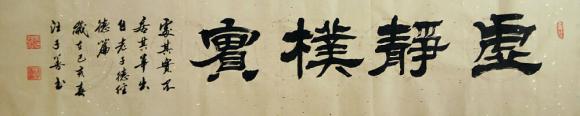 虚靜樸實
處其實不
居其華出
自老子德經
德篇
歲在己亥春
汪子善书